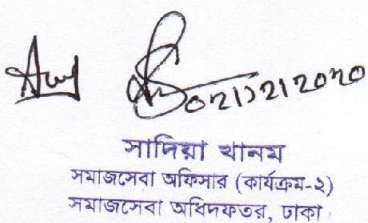 ০২/১২/২০২০
সাদিয়া খানম
সমাজসেবা অফিসার (কার্যক্রম-২)
সমাজসেবা অধিদফতর, ঢাকা